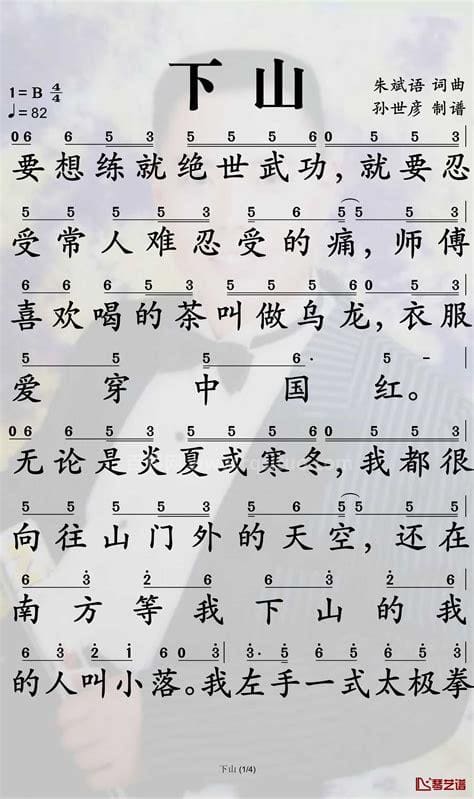 下山
1=B 4/4
♩=82
朱斌语 词曲
孙世彦 制谱
0 6 6 5 3 5 5 5 6 0 5 5 3
要想练就绝世武功，就要忍
5 5 5 3 5 5 5 6 5 5 5 3
受常人难忍受的痛，师傅
6 6 6 5 3 5 5 5 6 0 5 3
喜欢喝的茶叫做乌龙，衣服
5 5 5 6· 5 -
爱穿中国红。
0 6 6 5 3 5 5 5 6 0 5 5 3
无论是炎夏或寒冬，我都很
5 5 5 3 5 5 5 6 5 5 5 3
向往山门外的天空，还在
6 3 2 6 6 3 2 6
南方等我下山的我
6 3 2 1 6 0 3· 5 6 6 6 5 3
的人叫小落。我左手一式太极拳
下山 (1/4)
琴艺谱